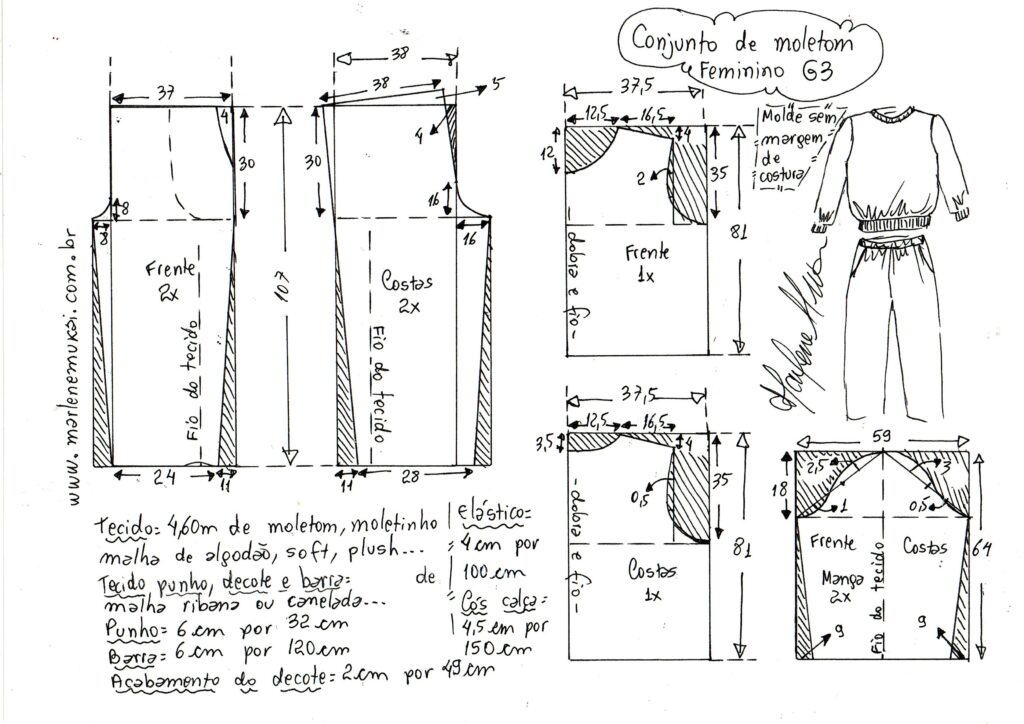 Conjunto de moletom
Feminino G3
Molde sem
margem
de
costura
www.marlenemukai.com.br
37
4
30
8
8
Frente
2x
Fio do tecido
24
11
107
38
38
5
4
30
16
16
Costas
2x
Fio do tecido
11
28
37,5
12,5
16,5
12
4
2
35
81
Frente
1x
-dobra e fio-
37,5
12,5
16,5
3,5
4
0,5
35
81
Costas
1x
-dobra e fio-
59
2,5
3
18
1
0,5
Frente
Costas
64
Manga
2x
Fio do tecido
9
9
Tecido= 4,60m de moletom, moletinho
malha de algodão, soft, plush...
Tecido punho, decote e barra= de
malha ribana ou canelada...
Punho= 6 cm por 32 cm
Barra= 6 cm por 120 cm
Acabamento do decote= 2 cm por 49 cm
Elástico=
= 4 cm por
100 cm
Cós calça=
4,5 cm por
150 cm